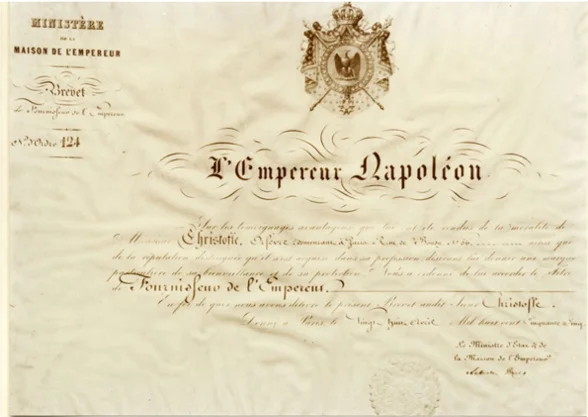 MINISTÈRE
DE LA
MAISON DE L'EMPEREUR
Brevet
de Fournisseur de l'Empereur
N° d'Ordre 124
L'Empereur Napoléon
Sur les témoignages avantageux que lui ont été rendus de la moralité de
Monsieur Christofle, Orfèvre à Paris Rue de Bondy N° 56, ainsi que
de la réputation distinguée qu'il s'est acquise dans sa profession désirant lui donner une marque
particulière de sa bienveillance et de sa protection Nous a ordonné de lui accorder le titre
de Fournisseur de l'Empereur.
En foi de quoi nous avons délivré le présent Brevet audit Sieur Christofle.
Donné à Paris le Vingt Avril Mil huit cent cinquante cinq
Le Ministre d'État & de
la Maison de l'Empereur